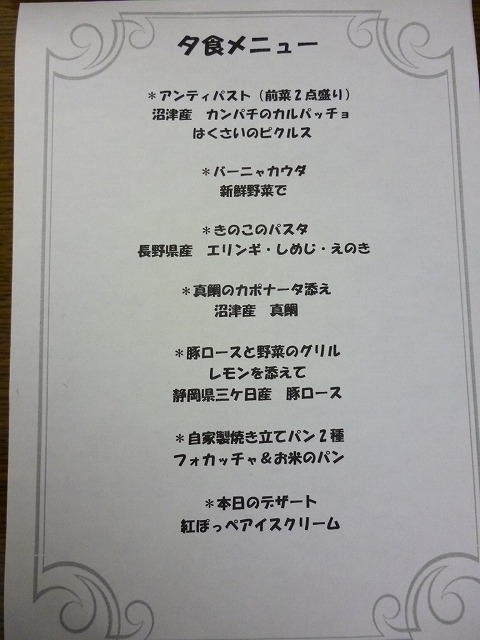 夕食メニュー
＊アンティパスト（前菜２点盛り）
沼津産　カンパチのカルパッチョ
はくさいのピクルス
＊バーニャカウダ
新鮮野菜で
＊きのこのパスタ
長野県産　エリンギ・しめじ・えのき
＊真鯛のカポナータ添え
沼津産　真鯛
＊豚ロースと野菜のグリル
レモンを添えて
静岡県三ケ日産　豚ロース
＊自家製焼き立てパン２種
フォカッチャ＆お米のパン
＊本日のデザート
紅ほっぺアイスクリーム